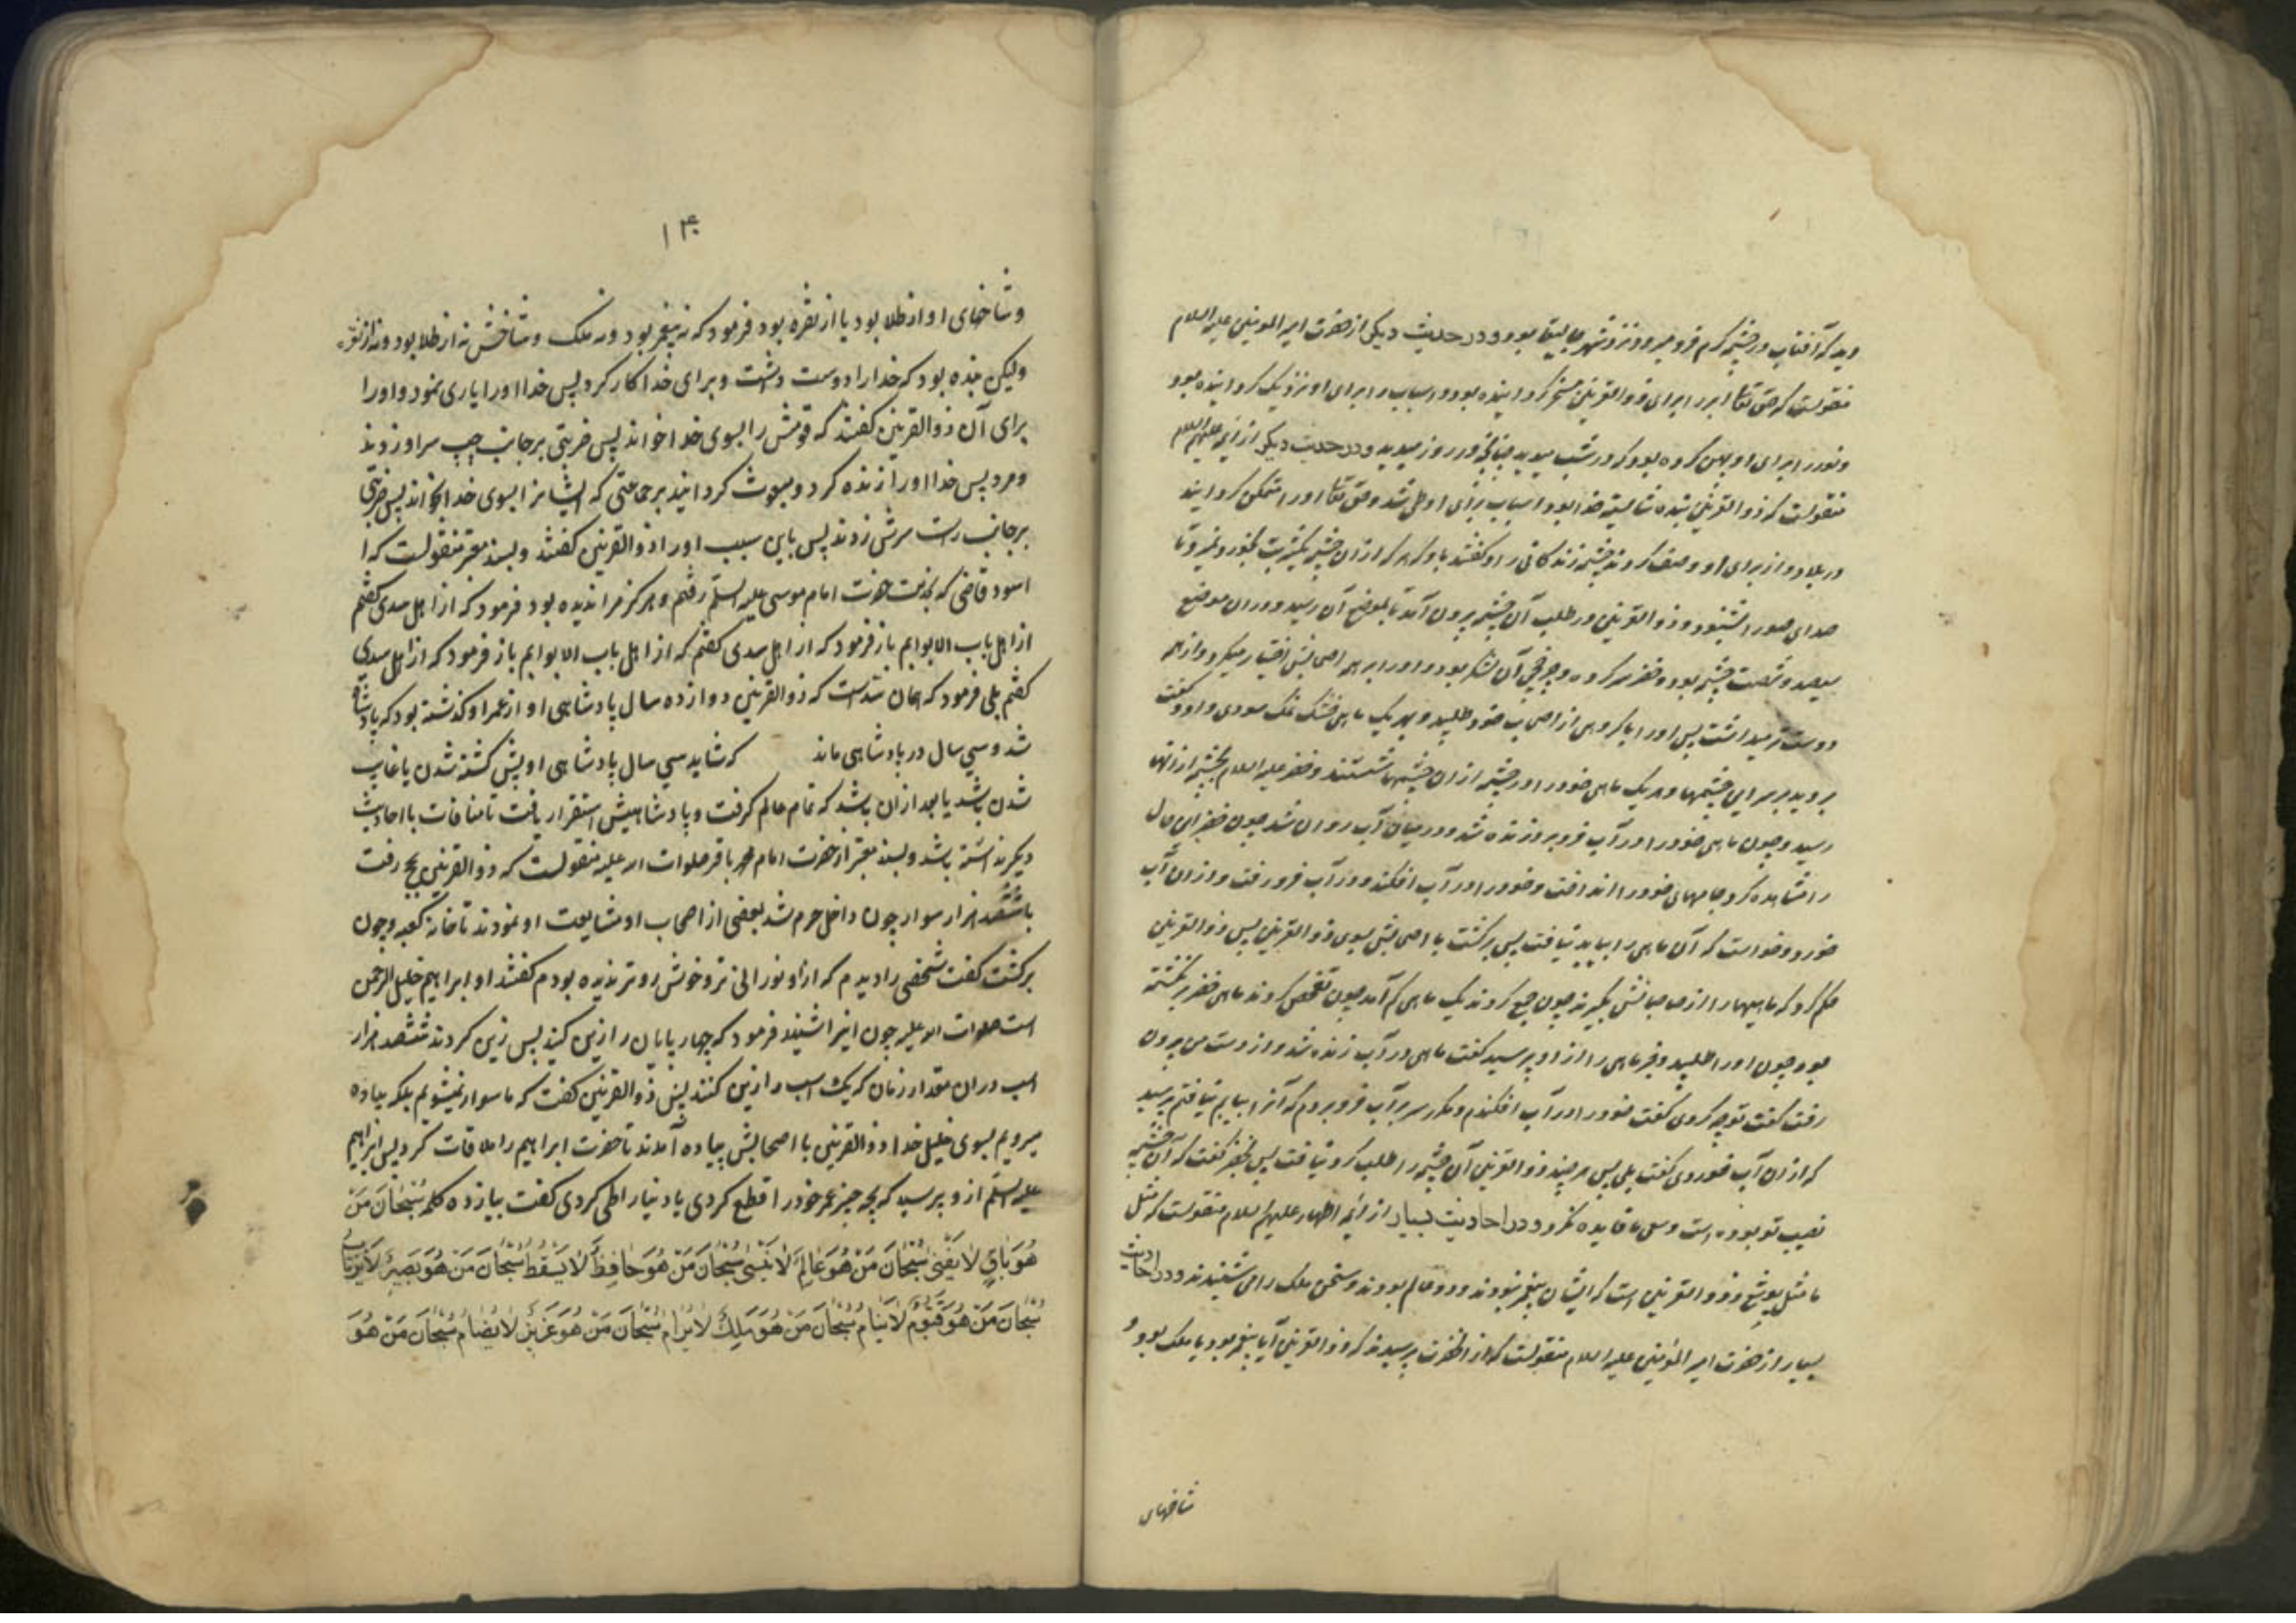 دید که آفتاب در چشمه گرم فرو میرود نزد شهر جابلیقا بود و در حدیث دیگر از حضرت امیر المومنین علیه السلام
منقولست که حق تعالی ابر را برای ذو القرنین مسخر گردانیده بود و اسباب را برای او نزدیک گردانیده بود
و نور را برای او پهن کرده بود که در شب میدید چنانچه در روز میدید و در حدیث دیگر از ائمه علیهم السلام
منقولست که ذو القرنین بنده شایسته خدا بود و اسباب برای او طی شد و حق تعالی او را متمکن گردانید
در بلاد و از برای او وصف کردند چشمه زندگانی را و گفتند باو که هر که از ان چشمه یکشربت بخورد نمیرد تا
صدای صور را بشنود و ذو القرنین در طلب آن چشمه بیرون آمد تا بموضع آن رسید و در ان موضع
سیصد و شصت چشمه بود و خضر سر کرده و چرخچی آن لشکر بود و او را بر همه اصحابش اختیار میکرد و از همه
دوست تر میداشت پس او را با گروهی از اصحاب خود طلبید و بهر یک ماهی خشک نمک سودی داد و گفت
بروید بر سر این چشمها و هر یک ماهی خود را در چشمه از ان چشمها بشستند و خضر علیه السلام بچشمه از انها
رسید و چون ماهی خود را در آب فرو برد زنده شد و در میان آب روان شد چون خضر این حال
را مشاهده کرد جامهای خود را انداخت و خود را در آب افکند و در آب فرو رفت و از ان آب
خورد و خواست که آن ماهی را بیابد نیافت پس برگشت با اصحابش بسوی ذو القرنین پس ذو القرنین
حکم کرد که ماهیها را از صاحبانش بگیرند چون جمع کردند یک ماهی کم آمد چون تفحص کردند ماهی خضر برنگشته
بود چون او را طلبید و خبر ماهی را از او پرسید گفت ماهی در آب زنده شد و از دست من بیرون
رفت گفت تو چه کردی گفت خود را در آب افکندم و مکرر سر بر آب فرو بردم که آنرا بیابم نیافتم پرسید
که از ان آب خوردی گفت بلی پس هر چند ذو القرنین آن چشمه را طلب کرد نیافت پس بخضر گفت که آن چشمه
نصیب تو بوده است و سعی ما فایده نکرد و در احادیث بسیار از ائمه اطهار علیهم السلام منقولست که مثل
ما مثل یوشع و ذو القرنین است که ایشان پیغمبر نبودند و دو عالم بودند و سخن ملک را می شنیدند و در احادیث
بسیار از حضرت امیر المؤمنین علیه السلام منقولست که از انحضرت پرسیدند که ذو القرنین آیا پیغمبر بود یا ملک بود و
شاخهای
۱۴۰
و شاخهای او از طلا بود یا از نقره بود فرمود که نه پیغمبر بود و نه ملک و شاخش نه از طلا بود و نه از نقره
ولیکن بنده بود که خدا را دوست داشت و برای خدا کار کرد پس خدا او را یاری نمود و او را
برای آن ذو القرنین گفتند که قومش را بسوی خدا خواند پس ضربتی بر جانب چپ سر او زدند
و مرد پس خدا او را زنده کرد و مبعوث گردانید بر جماعتی که ایشانرا بسوی خدا بخواند پس ضربتی
بر جانب راست سرش زدند پس باین سبب او را ذو القرنین گفتند و بسند معتبر منقولست که ا
اسود قاضی که بخدمت حضرت امام موسی علیه السلم رفتم و هرگز مرا ندیده بود فرمود که از اهل سدی گفتم
از اهل باب الابوابم باز فرمود که از اهل سدی گفتم که از اهل باب الابوابم باز فرمود که از اهل سدی
گفتم بلی فرمود که همان سدست که ذو القرنین دوازده سال پادشاهی او از عمر او گذشته بود که پادشاه
شد و سی سال در پادشاهی ماند که شاید سی سال پادشاهی او پیش کشته شدن یا غایب
شدن باشد یا بعد از ان باشد که تمام عالم گرفت و پادشاهیش استقرار یافت تا منافات با احادیث
دیگر نداشته باشد و بسند معتبر از حضرت امام محمد باقر صلوات الله علیه منقولست که ذو القرنین بحج رفت
با ششصد هزار سوار چون داخل حرم شد بعضی از اصحاب او مشایعت او نمودند تا خانه کعبه و چون
برگشت گفت شخصی را دیدم که از او نورانی تر و خوش رو تر ندیده بودم گفتند او ابراهیم خلیل الرحمن
است صلوات الله علیه چون اینرا شنید فرمود که چهار پایان را زین کنید پس زین کردند ششصد هزار
اسب در ان مقدار زمان که یک اسب را زین کنند پس ذو القرنین گفت که ما سوار نمیشویم بلکه پیاده
میرویم بسوی خلیل خدا و ذو القرنین با اصحابش پیاده آمدند تا حضرت ابراهیم را ملاقات کرد پس ابراهیم
علیه السلم از و پرسید که بچه چیز عمر خود را قطع کردی یا دنیا را طی کردی گفت بیازده کلمه سُبْحَانَ مَنْ
هُوَ بَاقٍ لَا یَفْنَی سُبْحَانَ مَنْ هُوَ عَالِمٌ لَا یَنْسَی سُبْحَانَ مَنْ هُوَ حَافِظٌ لَا یَسْقُطُ سُبْحَانَ مَنْ هُوَ بَصِیرٌ لَا یَرْتَابُ
سُبْحَانَ مَنْ هُوَ قَیُّومٌ لَا یَنَامُ سُبْحَانَ مَنْ هُوَ مَلِکٌ لَا یُرَامُ سُبْحَانَ مَنْ هُوَ عَزِیزٌ لَا یُضَامُ سُبْحَانَ مَنْ هُوَ